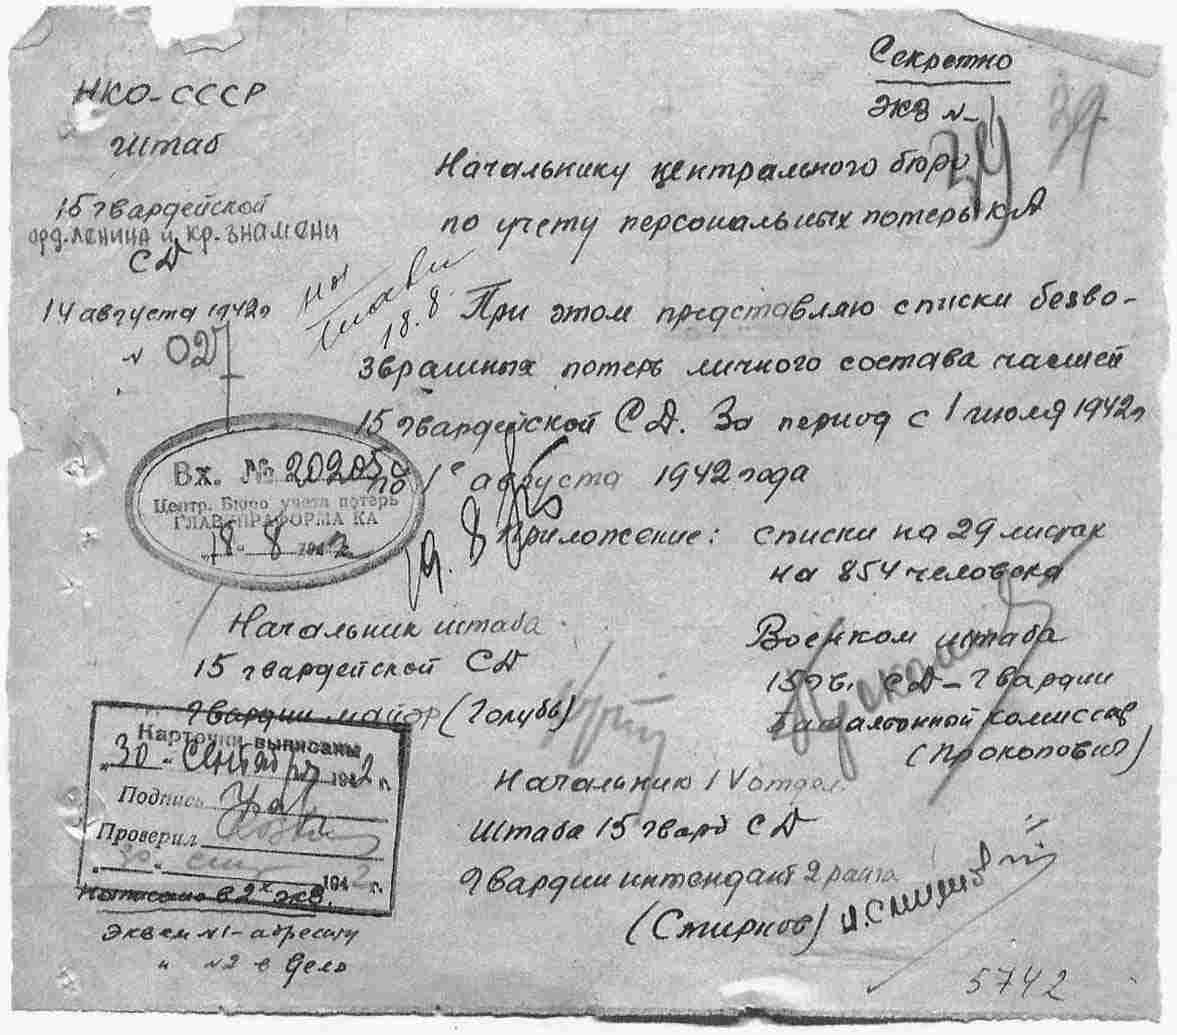 Секретно
экз N-1
39
НКО-СССР
Штаб
15 гвардейской
орд.ленина и кр.знамени
СД
14 августа 1942г
N 027
Начальнику центрального бюро
по учету персональных потерь КА
18.8.
При этом представляю списки безво-
звратных потерь личного состава частей
15 гвардейской СД. За период с 1 июля 1942г
по 1е августа 1942 года
Приложение: списки на 29 листах
на 854 человека
Вх. № 20205
Центр. Бюро учета потерь
ГЛАВУПРАФОРМА КА
„18"- 8 1942
19.8
Начальник штаба
15 гвардейской СД
Гвардии майор (Голубь)
Военком штаба
15 гв. СД-Гвардии
Батальонный комиссар
(Прокопович)
Начальник IV отдел.
Штаба 15 гвард СД
Гвардии интендант 2 ранга
(Смирнов)
Карточки выписаны
„30"- Сентябрь 1942 г.
Подпись
Проверил
„30" 1942 г.
Написано в 2х экз.
Экзем N1- адресату
и N2 в дело
5742